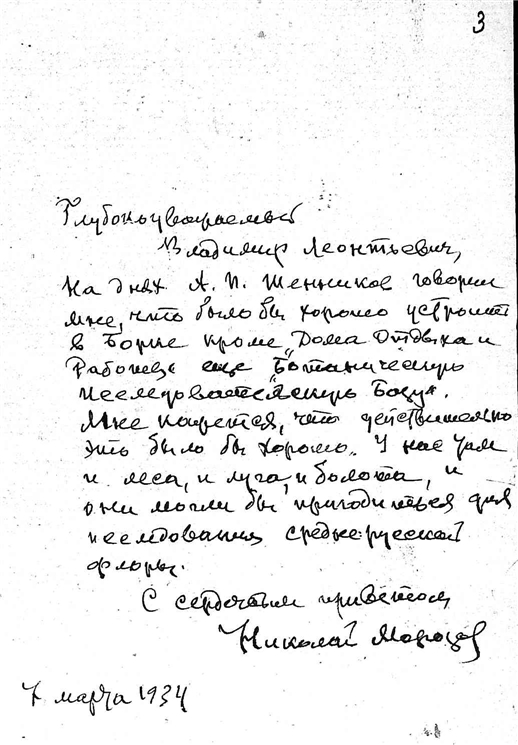 3
Глубокоуважаемый
Владимир Леонтьевич,
На днях А. П. Шенников говорил
мне, что было бы хорошо устроить
в Борке кроме „Дома Отдыха и
Работы" еще „Ботаническую
Исследовательскую Базу".
Мне кажется, что действительно
это было бы хорошо. У нас там
и леса, и луга, и болота, и
они могли бы пригодиться для
исследования средне-русской
флоры.
С сердечным приветом
Николай Морозов
7 марта 1934